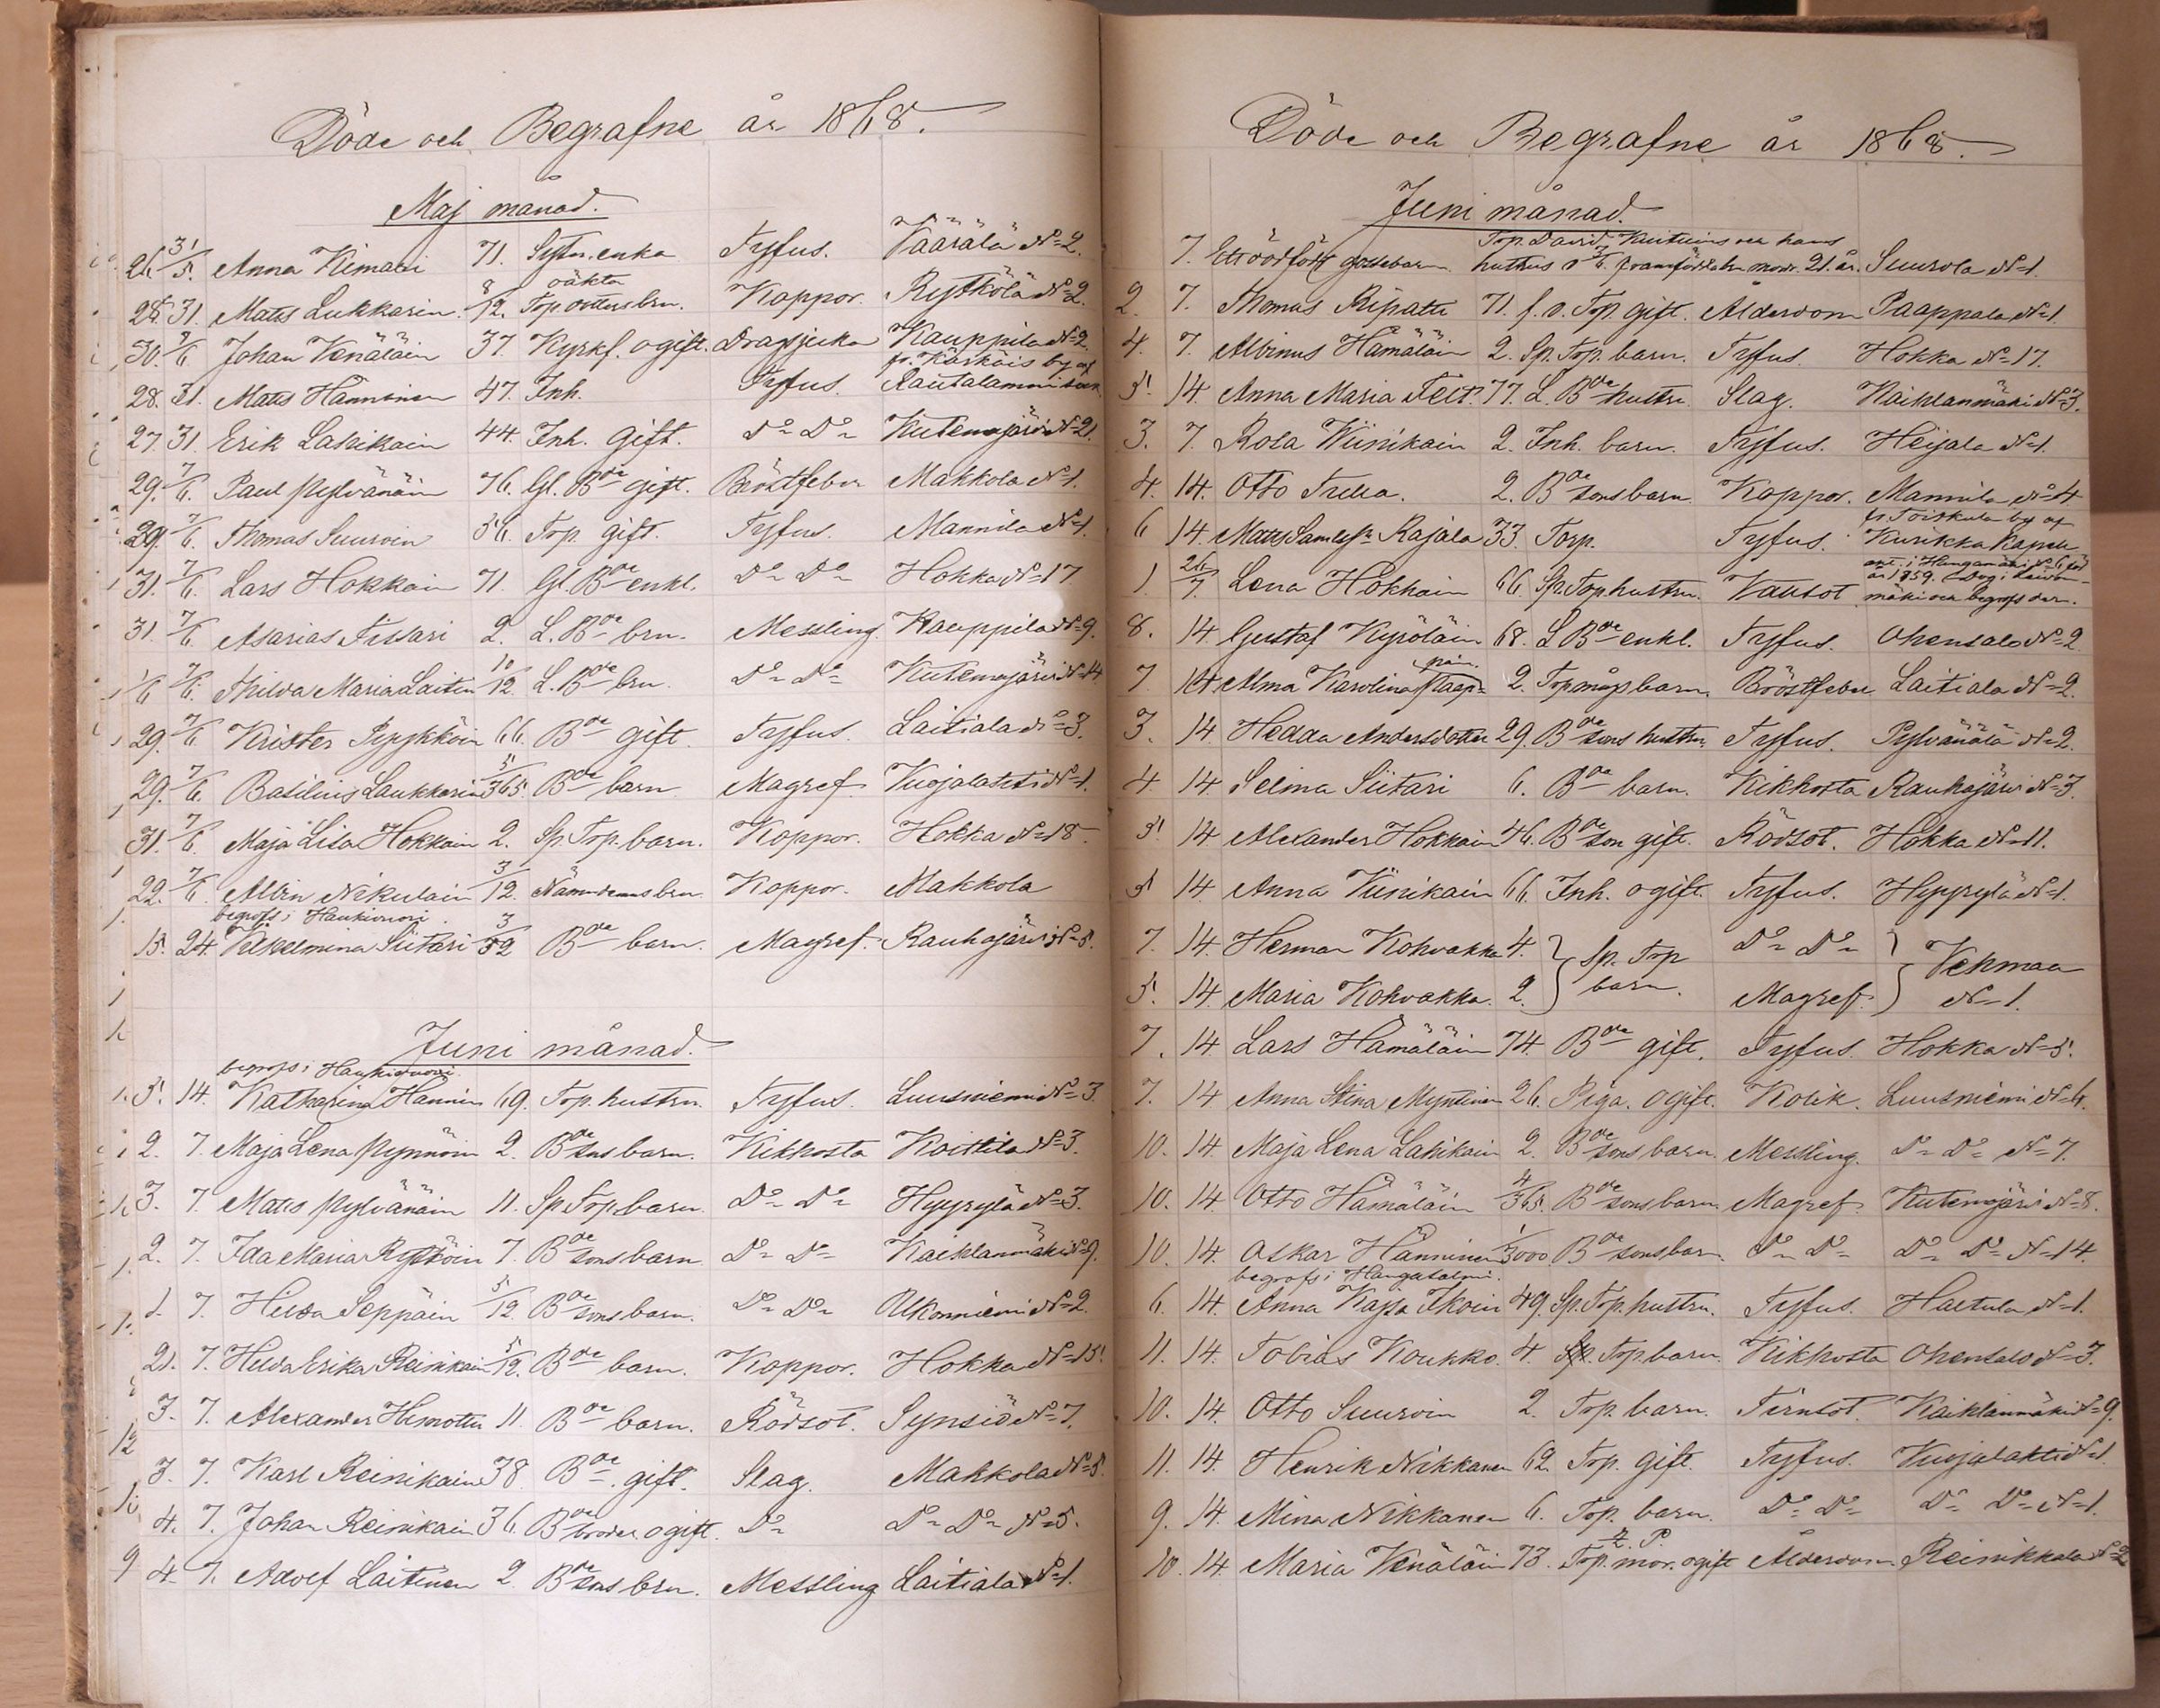 Döde och Begrafne år 1868.
Maj månad.
26. 31/5. Anna Kimari 71. Sytn. enka Tyfus. Väärälä No 2.
oäkta
31. Mats Lukkarin 8/12. Torp dotters brn. Koppor. Rytkölä No 2.
30. 7/6 Johan Venäläin 37. Kyrkf. ogift. Dragsjuka Kauppila No 2.
fr. Kärkäis by af
28. 31. Mats Hänninen 47. Inh. Tyfus. Rautalammi
27. 31. Erik Laakkain 44. Inh. gift. Do Do Kutemajärvi No 21.
29. 7/6. Paul Pylvänäin 76. Gl. Bde gift. Bröstfeber Makkola No 1.
29. 7/6. Thomas Suuroin 36. Torp. gift. Tyfus. Mannila No 1.
31. 7/6. Lars Hokkain 71. Gl. Bde enkl. Do Do Hokka No 17
31. 7/6. Asarias Tissari 2. L. Bde brn. Messling. Kauppila No 9.
1/6 7/6. Hilda Maria Laitin 10/12 L. Bde brn. Do Do Kutemajärvi No 14
29. 7/6 Krister Pyykköin 66. Bde gift. Tyfus. Laitiala No 3.
29. 7/6. Basilius Laukkarin 5/365. Bde barn Magref. Vuojalahti No 1.
31. 7/6. Maja Lisa Hokkain 2. Sp. Torp. barn. Koppor. Hokka No 18
22. 7/6. Albin Nikulain 3/12. Nämndemans brn. Koppor. Makkola
begrafs i Haukivuori.
15. 24. Vilhelmina Siitari 3/52 Bde barn. Magref. Rauhajärvi No 5.
Juni månad.
begrafs i Haukivuori.
5. 14. Katharina Hännin 69. Torp. hustru. Tyfus. Luusniemi No 3.
2. 7. Maja Lena Pynnöin 2. Bde sons barn. Kikhosta Koittila No 3.
3. 7. Mats Pylvänäin 11. Sp Torp barn. Do Do Hyyrylä No 3.
2. 7. Ida Maria Rytköin 7. Bde sons barn Do Do Kaiklanmäki No 9.
1. 7. Hilda Seppäin 5/12 Bde sons barn. Do Do Ukonniemi No 2.
21. 7. Hilda Erika Reinikain 5/12. Bde barn. Koppor. Hokka No 15.
3. 7. Alexander Himottu 11. Bde barn. Rödsot. Synsiö No 7.
3. 7. Karl Reinikain 38. Bde gift. Slag. Makkola No 5.
4. 7. Johan Reinikain 36. Bde broder ogift. Do Do Do No 5.
4. 7. Adolf Laitinen 2. Bde sons brn. Messling Laitiala No 1.
Döde och Begrafne år 1868.
Juni månad.
Torp. David Kuituins och hans
7. Ett dödfödt gossebarn hustrus modr. 21. år. Suurola No 1.
2. 7. Thomas Ripatti 71. f. d. Torp. gift. Ålderdom Paappala No 1.
4. 7. Albinus Hämäläin 2. Sp. Torp. barn. Tyfus. Hokka No 17.
5. 14. Anna Maria Felt. 77. L. Bde hustru. Slag. Kaiklanmäki No 3.
3. 7. Rosa Wiinikain 2. Inh. barn. Tyfus. Heijala No 1.
4. 14. Otto Tulia. 2. Bde sonsbarn Koppor. Mannila No 4.
fr. Toiskula by af
6 14. Mats Samuelss. Rajala 33. Torp. Tyfus. Kurikka Kapell
ant. i Hangamäki No 6 för
år 1859. Dog i
1. 26/7. Lena Hokkain 66. Sp. Torp hustru. Vattsot mäki och begrofs der.
8. 14 Gustaf Kyröläin 68. L Bde enkl. Tyfus. Ohensalo No 2
päin.
7. 14 Alma Karolina Paap= 2. Torp mågs barn. Bröstfeber Laitiala No 2.
3. 14 Hedda Andersdotter 29. Bde sons hustru. Tyfus. Pylvänälä No 2.
4. 14 Selma Siitari 6. Bde barn. Kikhosta Rauhajärvi No 3.
5. 14 Alexander Hokkain 46. Bde son gift. Rödsot. Hokka No 11.
5 14 Anna Viinikain 66. Inh. ogift. Tyfus. Hyyrylä No 1.
7. 14. Herman Kohvakka 4. } Sp. Torp Do Do } Vehmaa
5. 14 Maria Kohvakka. 2. } barn. Magref. } No 1.
7. 14. Lars Hämäläin 74. Bde gift. Tyfus. Hokka No 5.
7. 14 Anna Stina Myntinen 26. Piga. ogift. Kolik. Luusniemi No 6.
10. 14. Maja Lena Laakikain 2. Bde sons barn. Messling. Do Do No 7.
10. 14. Otto Hämäläin 4/365. Bde sons barn. Magref. Kutemajärvi No 8.
10. 14. Oskar Hänninen 1/3000 Bde sonsbarn. Do Do Do Do No 14.
begrafs i Hangastalmi.
6. 14. Anna Kajsa Ikoin 49. Sp. Torp. hustru. Tyfus. Haetula No 1.
11. 14. Tobias Koukko. 4. Torp barn. Kikhosta Ohensalo No 3.
10. 14. Otto Suuroin 2. Torp. barn. Kaiklanmäki No 9.
11. 14. Henrik Nikkanen 62. Torp. gift. Tyfus. Vuojalahti No 1.
9. 14. Mina Nikkanen 6. Torp. barn. Do Do Do Do No 1.
10. 14 Maria Venäläin 73. Torp. mor. ogift Ålderdom Reinikkala No 2